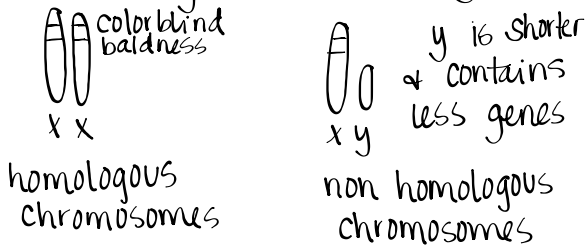 colorblind
baldness
X X
homologous
chromosomes
y is shorter
& contains
less genes
x y
non homologous
chromosomes